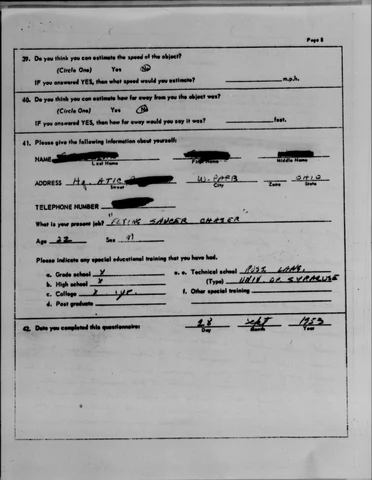 Page 8
39. Do you think you can estimate the speed of the object?
(Circle One) Yes No
IF you answered YES, then what speed would you estimate? m.p.h.
40. Do you think you can estimate how far away from you the object was?
(Circle One) Yes No
IF you answered YES, then how far away would you say it was? feet.
41. Please give the following information about yourself:
NAME
Last Name First Name Middle Name
ADDRESS Hq. ATIC W. PAFB OHIO
Street City Zone State
TELEPHONE NUMBER
What is your present job? "FLYING SAUCER CHASER
Age 22 Sex M
Please indicate any special educational training that you have had.
a. Grade school X e. Technical school RUSS LANG.
b. High school X (Type) UNIV. OF SYRACUSE
c. College X 1 yr. f. Other special training
d. Post graduate
42. Date you completed this questionnaire: 28 Sept 1953
Day Month Year